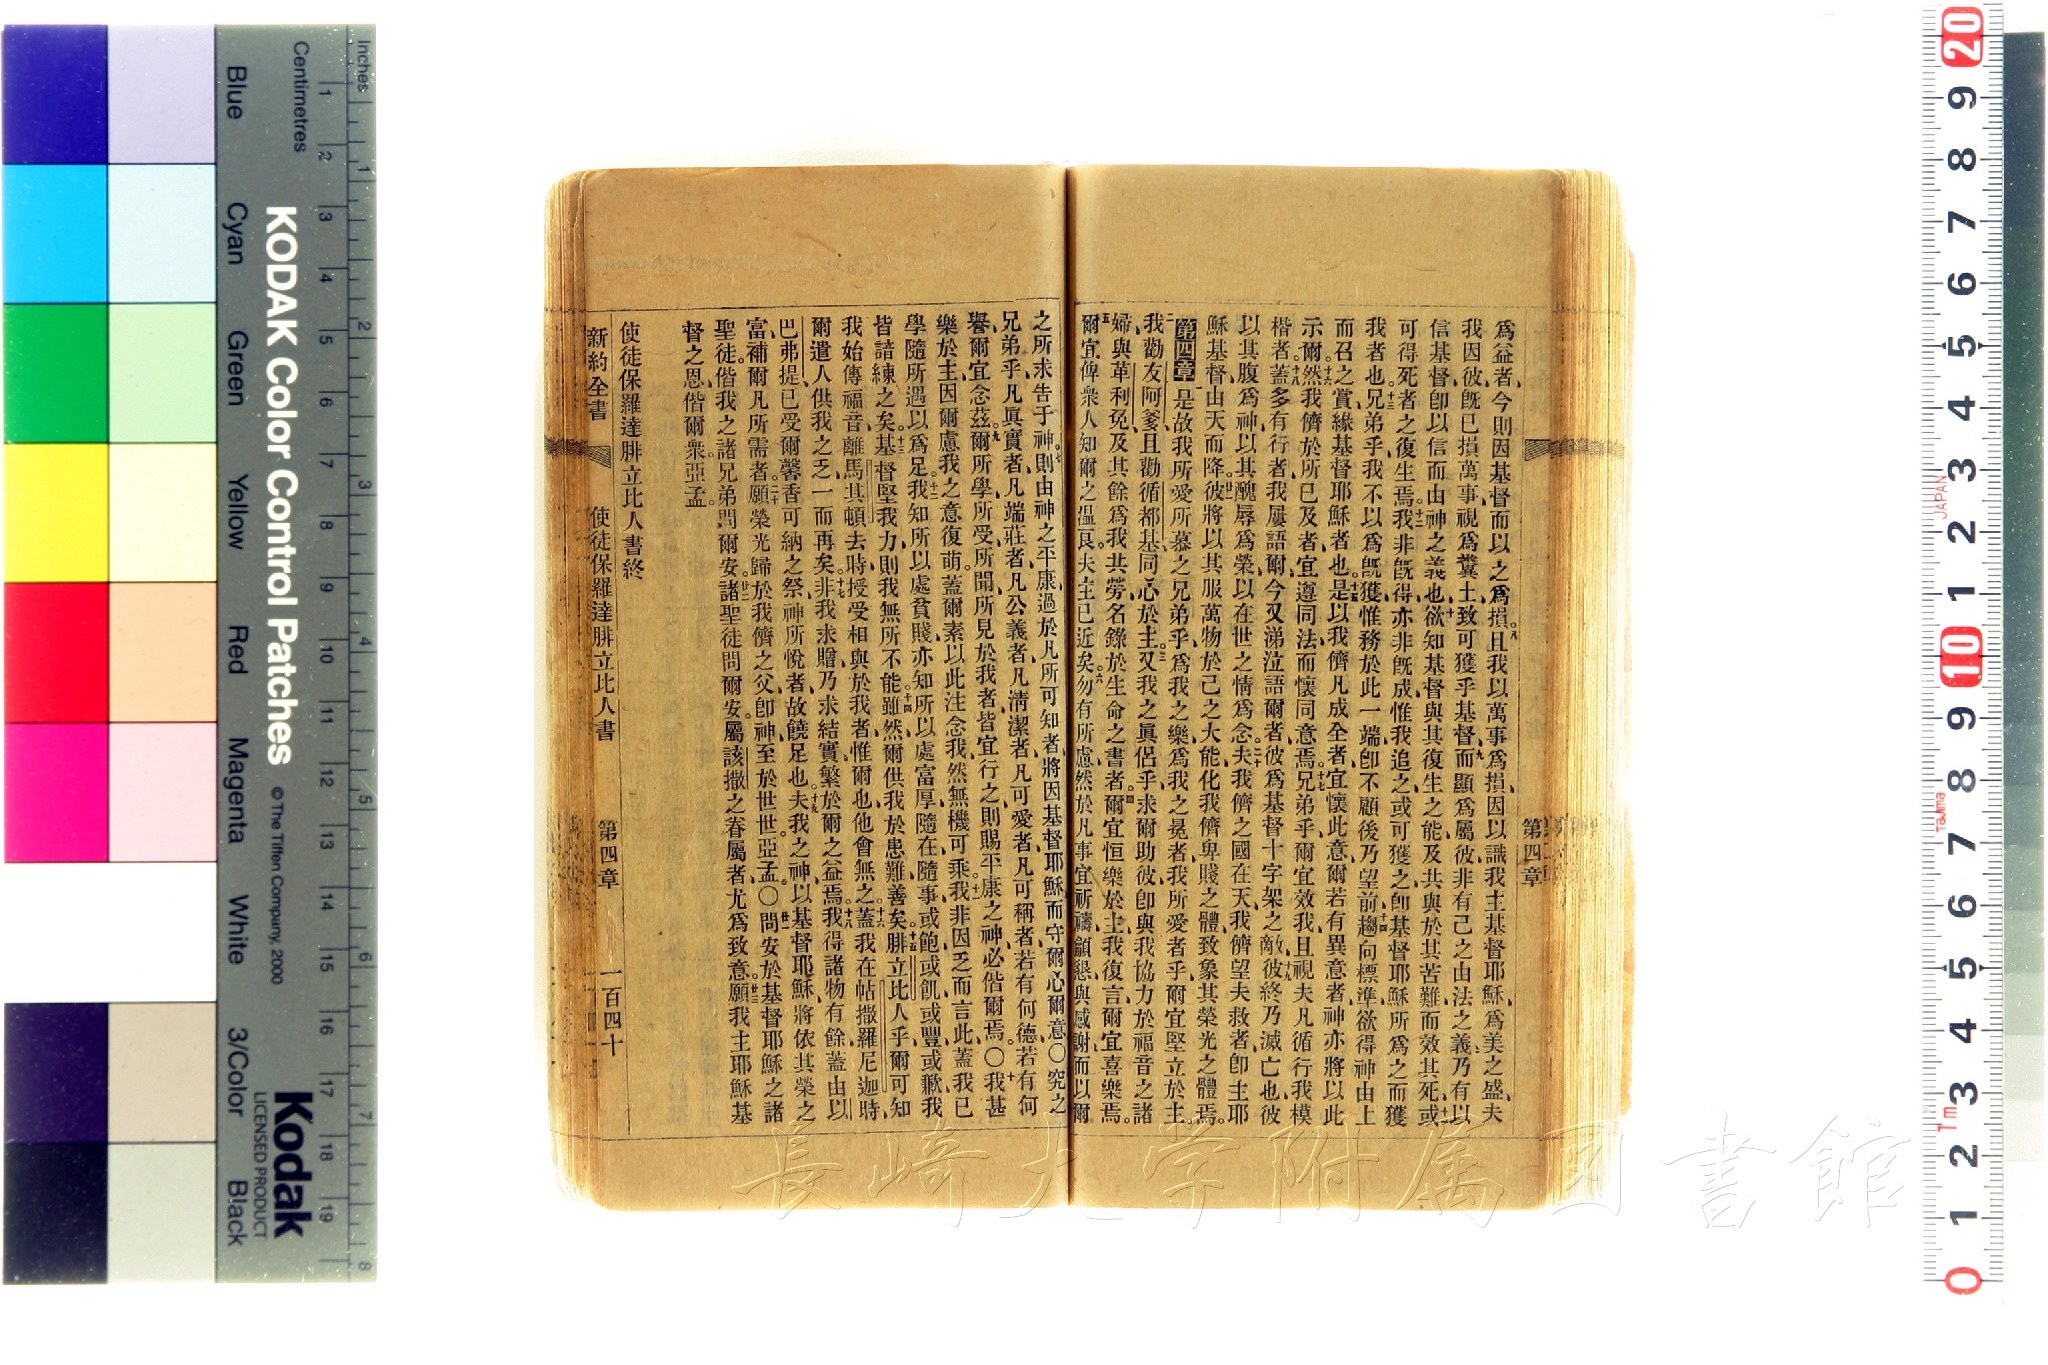 爲益者、今則因基督而以之爲損。八且我以萬事爲損、因以識我主基督耶穌、爲美之盛、夫
我因彼、旣已損萬事、視爲糞土、致可獲乎基督、九而顯爲屬彼、非有己之由法之義、乃有以
信基督、卽以信而由神之義也、十欲知基督、與其復生之能、及共與於其苦難、而效其死、十一或
可得死者之復生焉。十二我非旣得、亦非旣成、惟我追之、或可獲之、卽基督耶穌所爲之而獲
我者也。十三兄弟乎、我不以爲旣獲、惟務於此一端、卽不顧後、乃望前、十四趨向標準、欲得神由上
而召之賞、緣基督耶穌者也。十五是以我儕凡成全者、宜懷此意、爾若有異意者、神亦將以此
示爾。十六然我儕於所已及者、宜遵同法而懷同意焉。十七兄弟乎、爾宜效我、且視夫凡循行我模
楷者、十八蓋多有行者、我屢語爾、今又涕泣語爾者、彼爲基督十字架之敵、十九彼終乃滅亡也、彼
以其腹爲神、以其醜辱爲榮、以在世之情爲念、二十夫我儕之國在天、我儕望夫救者、卽主耶
穌基督、由天而降。廿一彼將以其服萬物於己之大能、化我儕卑賤之體、致象其榮光之體焉。
第四章 一是故我所愛所慕之兄弟乎、爲我之樂、爲我之冕者、我所愛者乎、爾宜堅立於主。
二我勸友阿爹、且勸循都基、同心於主。三又我之眞侶乎、求爾助彼、卽與我協力於福音之諸
婦、與革利免、及其餘爲我共勞、名錄於生命之書者。四爾宜恒樂於主、我復言、爾宜喜樂焉。
五爾宜俾衆人知爾之溫良。夫主已近矣。六勿有所慮、然於凡事宜祈禱籲懇、與感謝、而以爾
之所求告于神。七則由神之平康、過於凡所可知者、將因基督耶穌、而守爾心爾意。〇究之
兄弟乎、凡眞實者、凡端莊者、凡公義者、凡淸潔者、凡可愛者、凡可稱者、若有何德、若有何
譽、爾宜念茲。九爾所學所受、所聞所見於我者、皆宜行之、則賜平康之神、必偕爾焉。〇十我甚
樂於主、因爾慮我之意復萌、蓋爾素以此注念我、然無機可乘。十一我非因乏而言此、蓋我已
學隨所遇、以爲足。十二我知所以處貧賤、亦知所以處富厚、隨在隨事、或飽或飢、或豐或歉、我
皆諳練之矣。十三基督堅我力、則我無所不能。十四雖然爾供我於患難善矣。十五腓立比人乎、爾可知
我始傳福音、離馬其頓去時、授受相與於我者、惟爾也、他會無之。十六蓋我在帖撒羅尼迦時、
爾遣人供我之乏、一而再矣。十七非我求贈、乃求結實繁於爾之益焉。十八我得諸物有餘、蓋由以
巴弗提已受爾馨香可納之祭、神所悅者、故饒足也。十九夫我之神、以基督耶穌、將依其榮之
富、補爾凡所需者。二十願榮光歸於我儕之父、卽神、至於世世、亞孟。〇廿一問安於基督耶穌之諸
聖徒、偕我之諸兄弟問爾安。廿二諸聖徒問爾安、屬該撒之眷屬者尤爲致意。廿三願我主耶穌基
督之恩、偕爾衆、亞孟。
使徒保羅達腓立比人書終
新約全書 使徒保羅達腓立比人書 第四章 一百四十
第四章
長崎大学附属図書館
KODAK Color Control Patches
© The Tiffen Company, 2000
Kodak
LICENSED PRODUCT
Inches
Centimetres
Blue
Cyan
Green
Yellow
Red
Magenta
White
3/Color
Black
1 2 3 4 5 6 7 8 9 10 11 12 13 14 15 16 17 18 19
1 2 3 4 5 6 7 8
20 9 8 7 6 5 4 3 2 1 10 9 8 7 6 5 4 3 2 1 0
JAPAN
Tajima
Tm